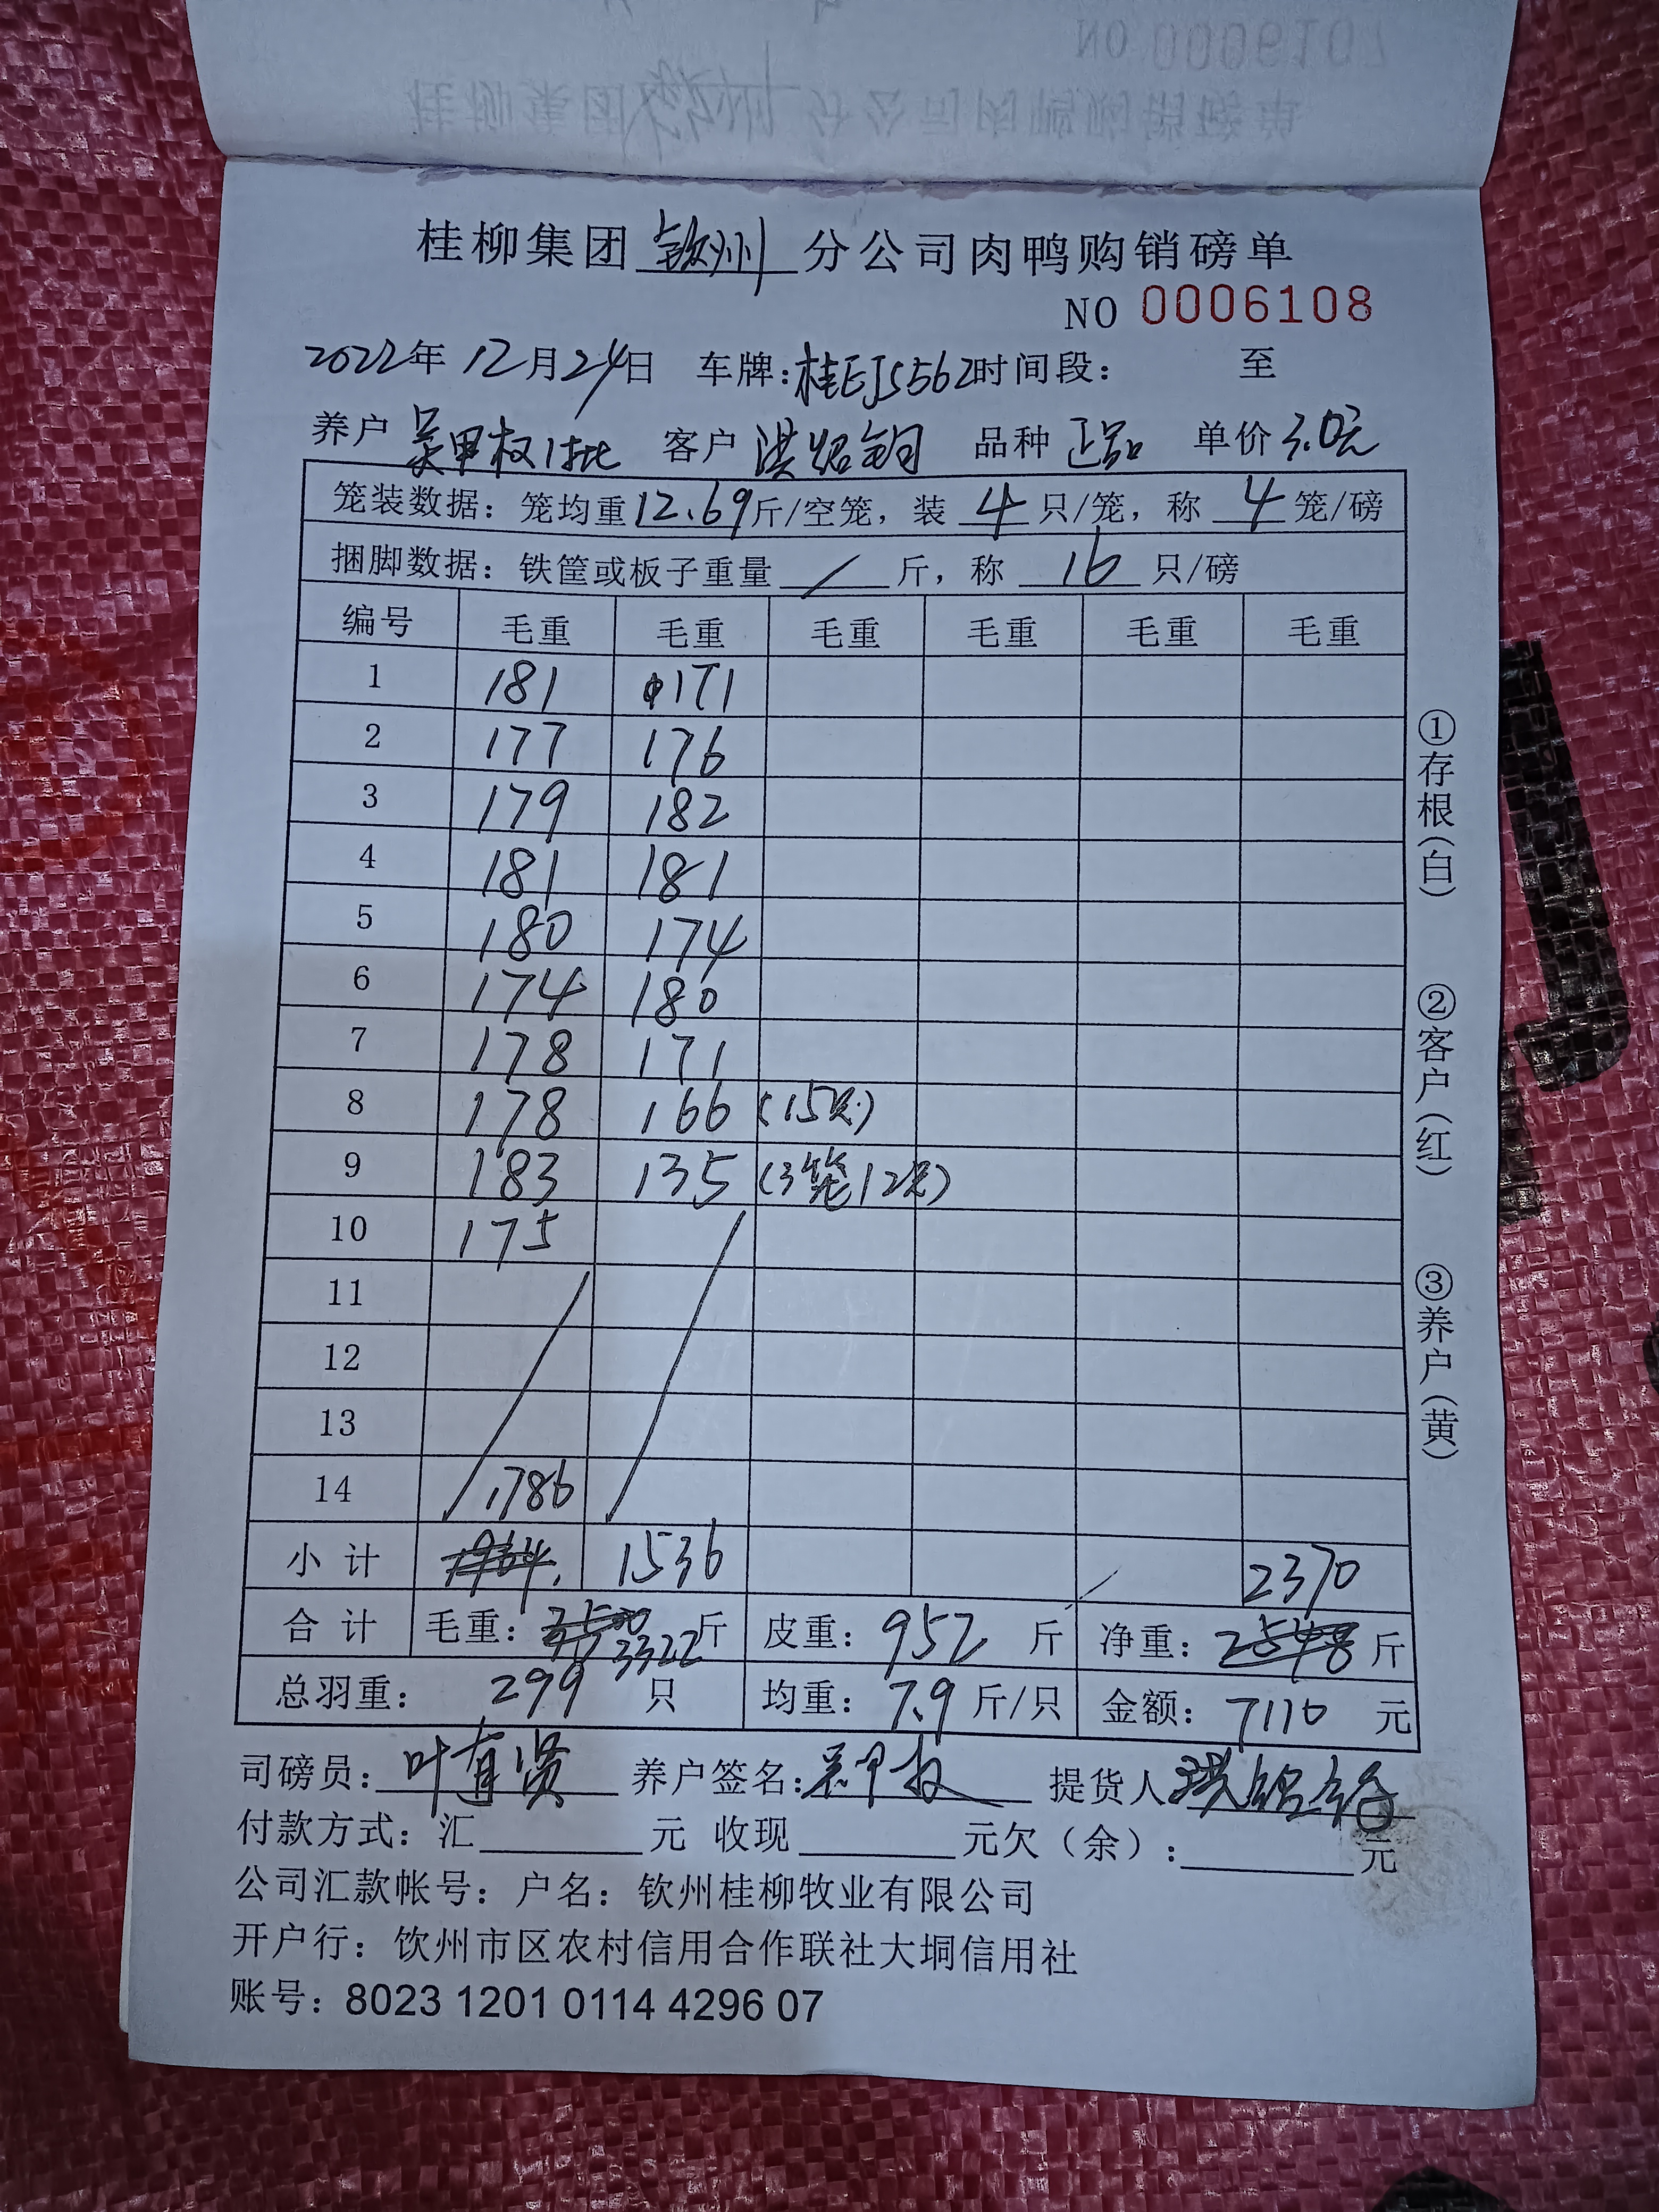 NO 0006107
桂柳集团钦州分公司肉鸭购销磅单
桂柳集团钦州分公司肉鸭购销磅单
NO 0006108
2022年 12月24日 车牌:桂EJ5562时间段: 至
养户 吴甲权1批 客户 洪绍钧 品种 正品 单价3.0元
笼装数据: 笼均重12.69斤/空笼, 装 4 只/笼, 称 4 笼/磅
捆脚数据: 铁筐或板子重量 / 斤, 称 16 只/磅
编号 毛重 毛重 毛重 毛重 毛重 毛重
1 181 171
2 177 176
3 179 182
4 181 181
5 180 174
6 174 180
7 178 171
8 178 166 (15只)
9 183 135 (3笼12只)
10 175
11
12
13
14 1786
小计 1536 2370
合计 毛重: 3322斤 皮重: 952 斤 净重: 2548 斤
总羽重: 299 只 均重: 7.9 斤/只 金额: 7110 元
司磅员: 叶有贤 养户签名: 吴甲权 提货人
付款方式: 汇 元 收现 元欠(余): 元
公司汇款帐号: 户名: 钦州桂柳牧业有限公司
开户行: 钦州市区农村信用合作联社大垌信用社
账号: 8023 1201 0114 4296 07
①存根(白)
②客户(红)
③养户(黄)